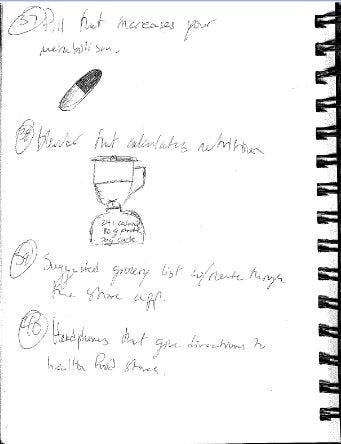 37 Pill that increases your
metabolism.
38 Blender that calculates nutrition
241 calories
80 g protein
70g carbs
39 Suggested grocery list w/route through
the store app.
40 Headphones that give directions to
health food stores.